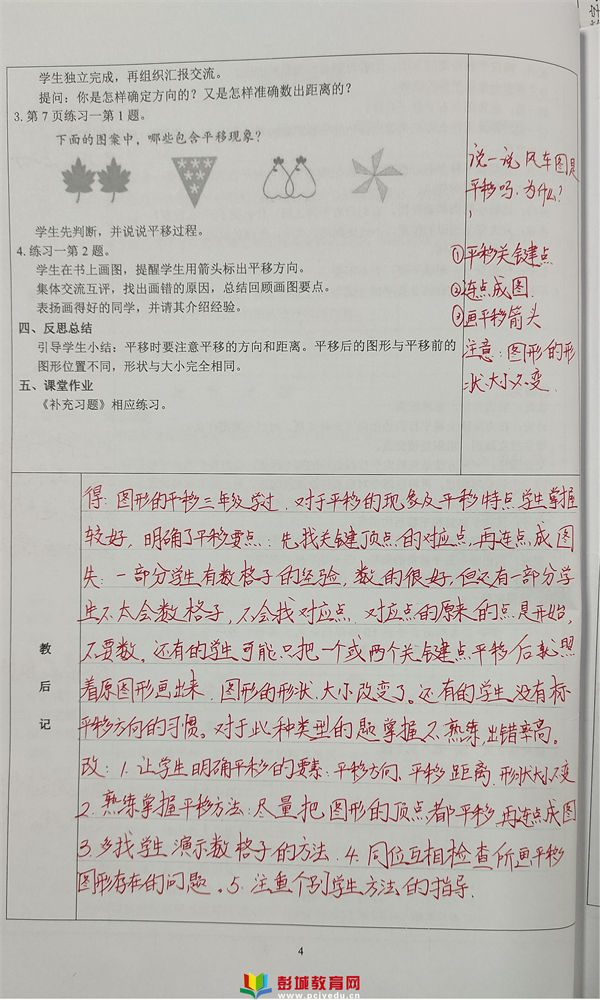 学生独立完成，再组织汇报交流。
提问：你是怎样确定方向的？又是怎样准确数出距离的？
3. 第 7 页练习一第 1 题。
下面的图案中，哪些包含平移现象？
学生先判断，并说说平移过程。
4. 练习一第 2 题。
学生在书上画图，提醒学生用箭头标出平移方向。
集体交流互评，找出画错的原因，总结回顾画图要点。
表扬画得好的同学，并请其介绍经验。
四、反思总结
引导学生小结：平移时要注意平移的方向和距离。平移后的图形与平移前的
图形位置不同，形状与大小完全相同。
五、课堂作业
《补充习题》相应练习。
说一说风车图是
平移吗，为什么？
①平移关键点
②连点成图.
③画平移箭头
注意：图形的形
状大小不变.
教后记
得：图形的平移三年级学过，对于平移的现象及平移特点学生掌握
较好，明确了平移要点：先找关键顶点的对应点，再连点成图
失：一部分学生有数格子的经验，数的很好，但还有一部分学
生不太会数格子，不会找对应点，对应点的原来的点是开始，
不要数。还有的学生可能只把一个或两个关键点平移后就照
着原图形画出来，图形的形状、大小改变了。还有的学生没有标
平移方向的习惯。对于此种类型的题掌握不熟练，出错率高。
改：1. 让学生明确平移的要素：平移方向、平移距离、形状大小不变
2. 熟练掌握平移方法：尽量把图形的顶点都平移，再连点成图
3. 多找学生演示数格子的方法. 4. 同位互相检查所画平移
图形存在的问题。5. 注重个别学生方法的指导.
4
彭城教育网
www.pcjyedu.cn